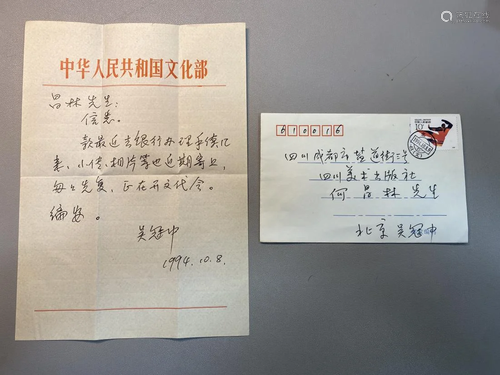 中华人民共和国文化部
昌林先生:
信悉。
款最近去银行办理手续汇
来,小传、相片等也近期寄上,
匆匆先复,正在开文代会。
编安。
吴冠中
1994.10.8.
610016
四川成都市盐道街三号
四川美术出版社
何昌林先生
北京 吴冠中